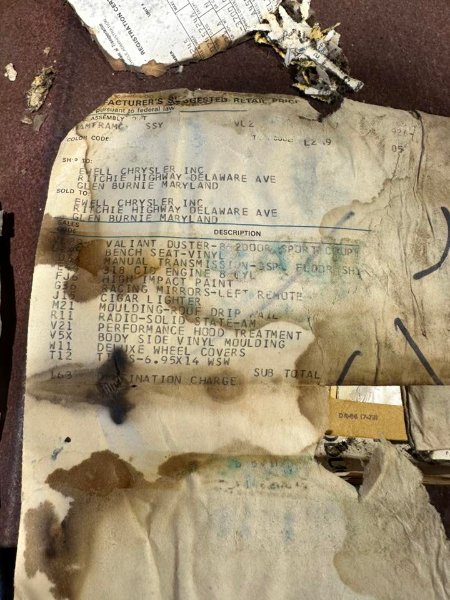 REGISTRATION CERT
FACTURER'S SUGGESTED RETAIL PRICE
pursuant to federal law
ASSEMBLY
HAMTRAMC SSY VL2
COLOR CODE:
SHIP TO:
EWELL CHRYSLER INC
RITCHIE HIGHWAY DELAWARE AVE
GLEN BURNIE MARYLAND
SOLD TO:
EWELL CHRYSLER INC
RITCHIE HIGHWAY DELAWARE AVE
GLEN BURNIE MARYLAND
SALES DESCRIPTION
VALIANT DUSTER-8 2DOOR SPORT COUPE
BENCH SEAT-VINYL
MANUAL TRANSMISSION-3SP. FLOOR SH
318 CID ENGINE 8 CYL
FJ6 HIGH IMPACT PAINT
G36 RACING MIRRORS-LEFT REMOTE
J11 CIGAR LIGHTER
M21 MOULDING-ROOF DRIP RAIL
R11 RADIO-SOLID STATE-AM
V21 PERFORMANCE HOOD TREATMENT
V5X BODY SIDE VINYL MOULDING
W11 DELUXE WHEEL COVERS
T12 -6.95X14 WSW
SUB TOTAL
L63 INATION CHARGE